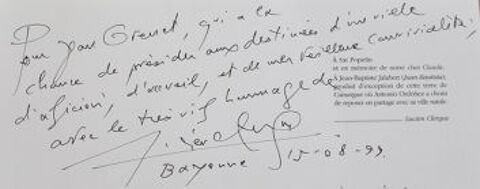 Pour Jean Grenet, qui a la
chance de présider aux destinées d'une ville
d'aficion, d'accueil, et de merveilleuse convivialité,
avec le très vif hommage de
Bayonne 15-08-99
À Sac Popelin
et en mémoire de notre cher Claude.
À Jean-Baptiste Jalabert (Juan Bautista),
d'exception de cette terre de
Camargue où Antonio Ordóñez a choisi
de reposer en partage avec sa ville natale.
Lucien Clergue